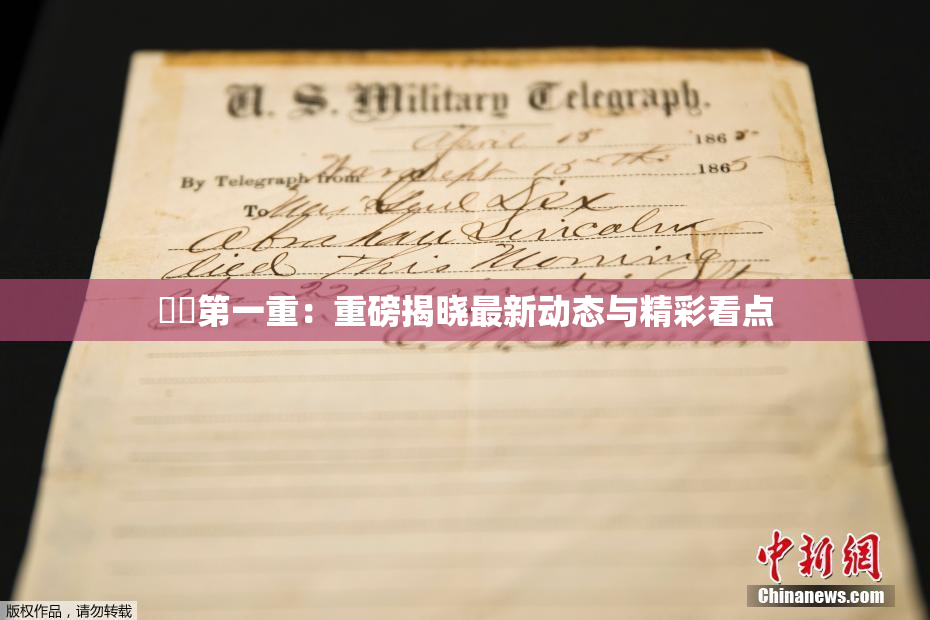 U. S. Military Telegraph.
April 15 1865.
By Telegraph from War Dept 15th 1865
To Maj Genl Dix
Abraham Lincoln
died This Morning
at 22 minutes after
第一重：重磅揭晓最新动态与精彩看点
E. M. Stanton
中新网
Chinanews.com
版权作品，请勿转载